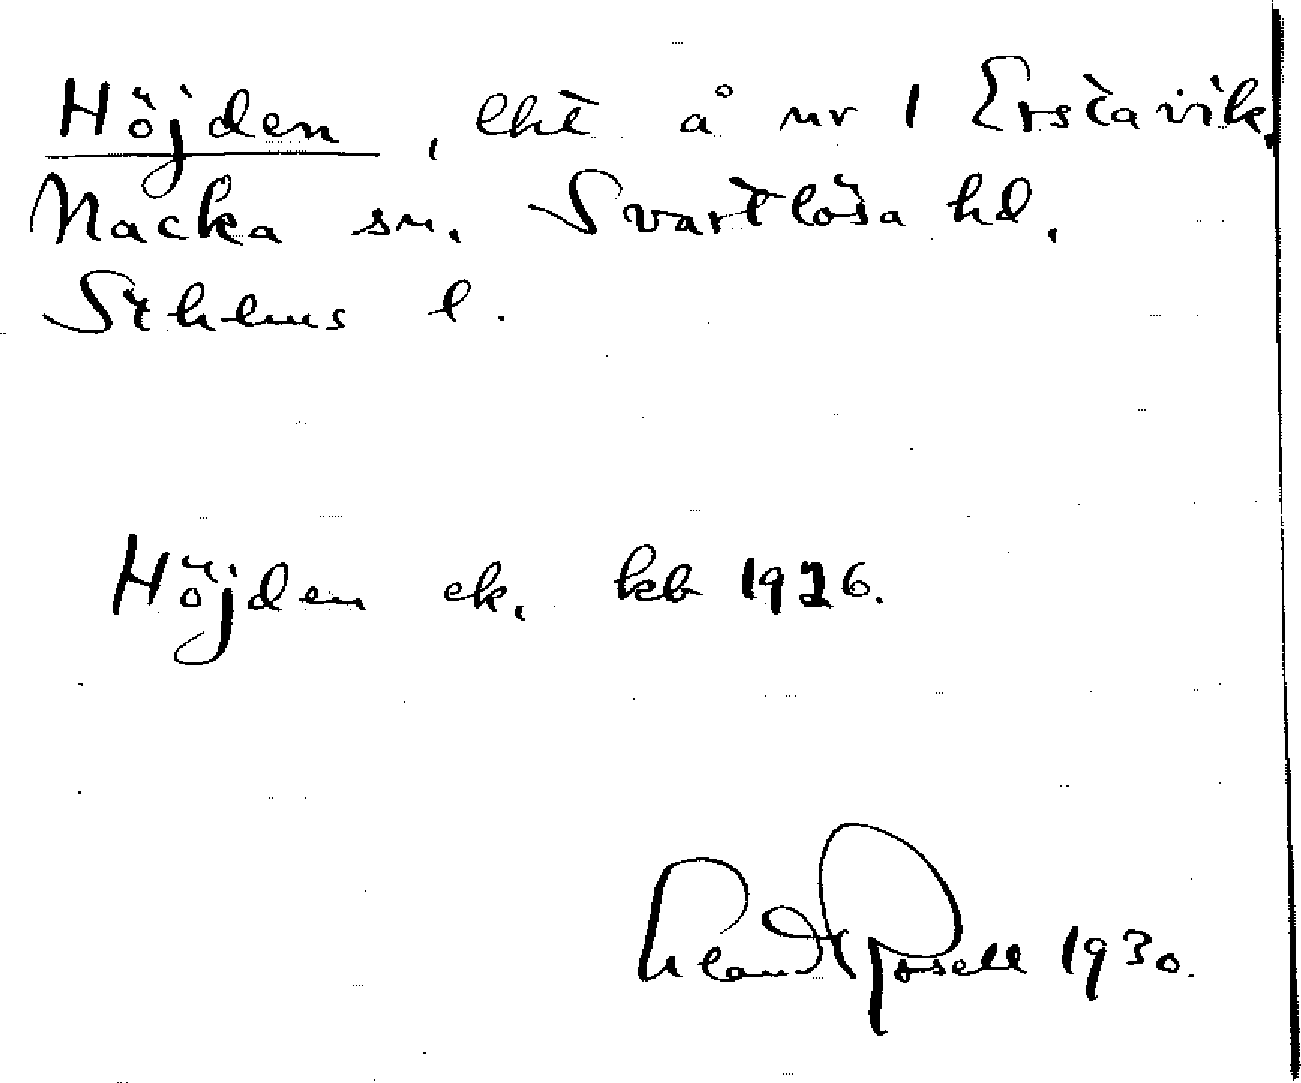 Höjden, lht å nr 1 Erstavik,
Nacka sn. Svartlösa hd.
Sthlms l.
Höjden ek. kb 1926.
Erland Rosell 1930.